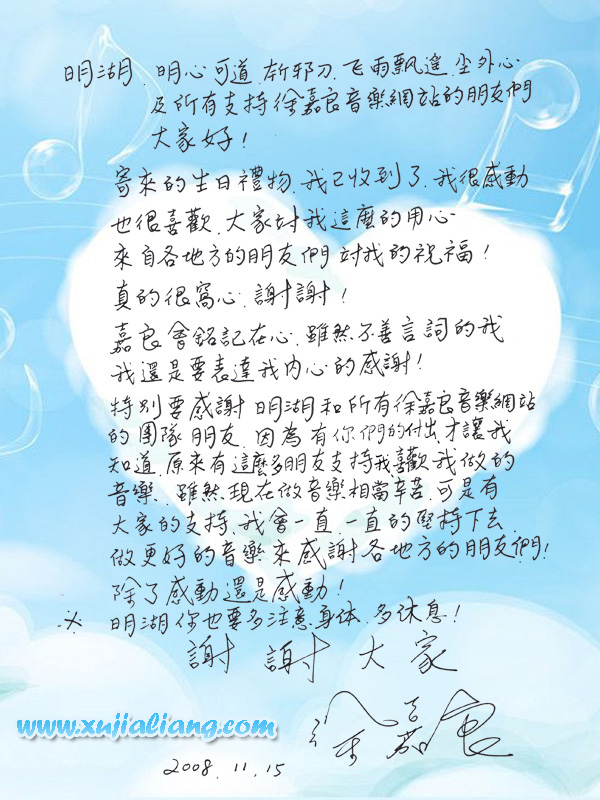 明湖、明心可道、斬邪刀、飞雨飄遙、尘外心
及所有支持徐嘉良音樂網站的朋友們
大家好!
寄來的生日禮物、我已收到了、我很感動
也很喜歡、大家対我這麽的用心
來自各地方的朋友們 対我的祝福!
真的很窩心、謝謝!
嘉良會銘記在心、雖然不善言詞的我
我還是要表達我内心的感謝!
特别要感謝 明湖和所有徐嘉良音樂網站
的團隊朋友、因為有你們的付出、才讓我
知道、原來有這麼多朋友支持我喜歡我做的
音樂、雖然現在做音樂相當辛苦、可是有
大家的支持、我會一直、一直的堅持下去、
做更好的音樂來感謝各地方的朋友們!
除了感動還是感動!
※ 明湖你也要多注意身体、多休息!
謝 謝 大 家
徐嘉良
www.xujialiang.com
2008.11.15